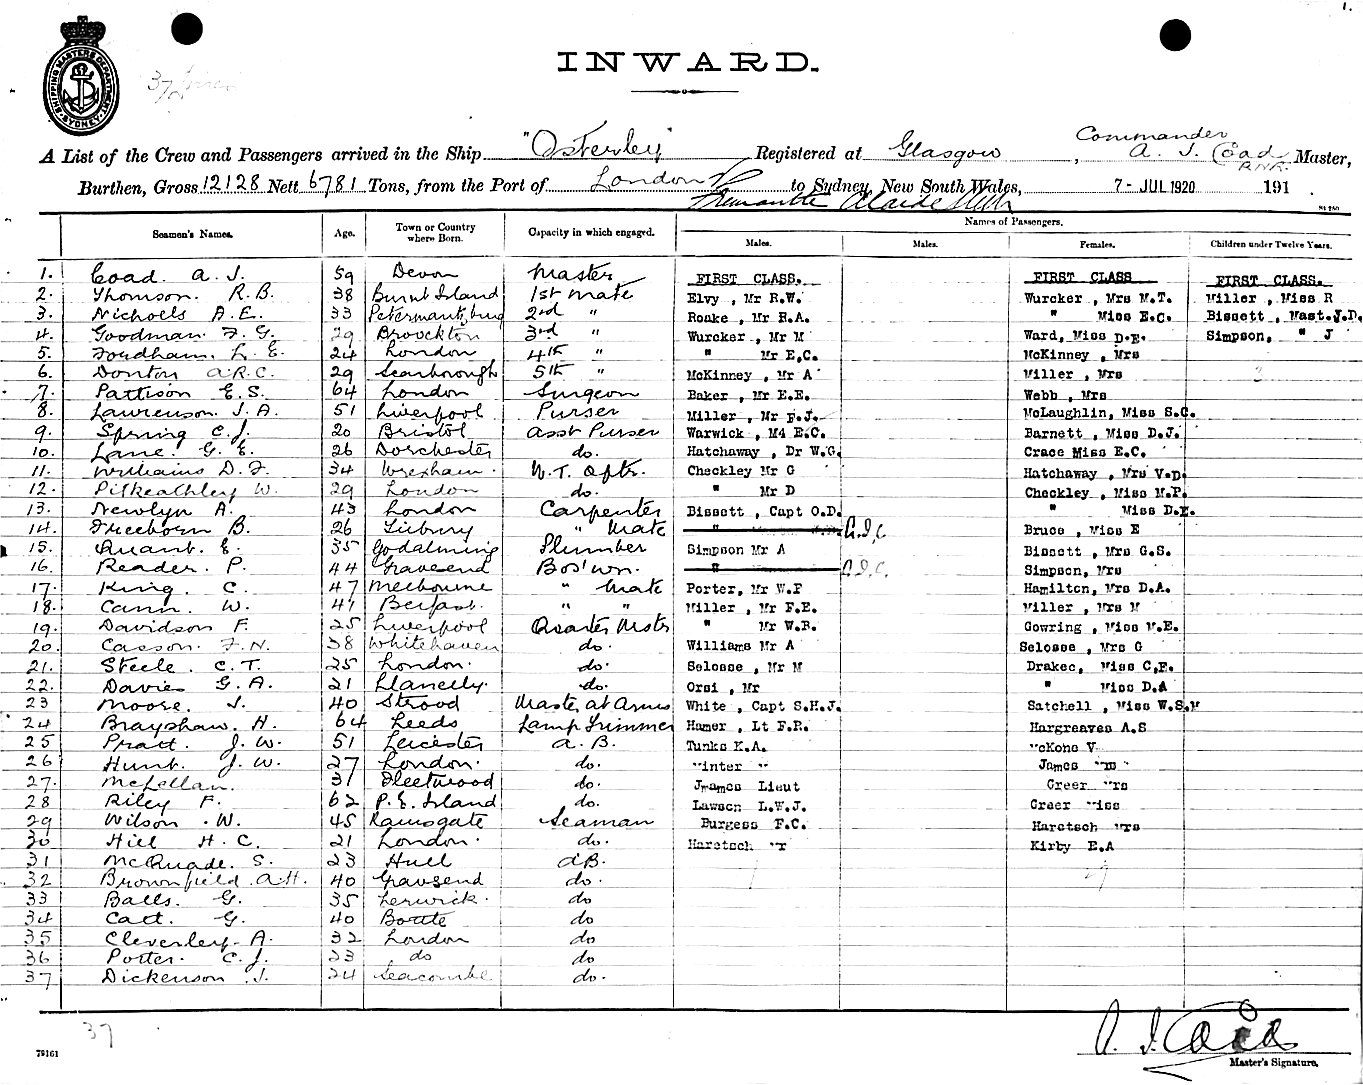 1.
SHIPPING MASTERS DEPARTMENT SYDNEY
37
INWARD.
Commander
A List of the Crew and Passengers arrived in the Ship "Osterley" Registered at Glasgow, A. J. Coad Master,
R.N.R.
Burthen, Gross 12128 Nett 6781 Tons, from the Port of London to Sydney, New South Wales, 7 - JUL 1920 191 .
Fremantle Adelaide Melb
Names of Passengers.
Seamen's Names. Age. Town or Country where Born. Capacity in which engaged. Males. Males. Females. Children under Twelve Years.
FIRST CLASS. FIRST CLASS FIRST CLASS.
1. Coad. A. J. 59 Devon Master
2. Thomson. R. B. 38 Burnt Island 1st Mate Elvy , Mr R.W. Wurcker , Mrs M.T. Miller , Miss R
3. Nicholls A. E. 33 Petermantzburg 2nd " Roake , Mr R.A. " Miss E.C. Bissett , Mast. J.D.
4. Goodman. F. G. 29 Brockton 3rd " Wurcker , Mr M Ward, Miss D.E. Simpson, " J
5. Foudham. L. E. 24 London 4th " " Mr E.C. McKinney , Mrs
6. Donton A.R.C. 29 Scarborough 5th " McKinney , Mr A Miller , Mrs
7. Pattison E. S. 64 London Surgeon Baker , Mr E.E. Webb , Mrs
8. Lawrenson. J. A. 51 Liverpool Purser Miller , Mr F.J. McLaughlin, Miss S.C.
9. Spring C. J. 20 Bristol Asst Purser Warwick , M4 E.C. Barnett , Miss D.J.
10. Lane. G. E. 26 Dorchester do. Hatchaway , Dr W.G. Crace Miss E.C.
11. Williams D. F. 34 Wrexham. W.T. Optr. Checkley Mr G Hatchaway , Mrs V.D.
12. Pitkeathley W. 29 London do. " Mr D Checkley , Miss M.P.
13. Newlyn A. 43 London Carpenter Bissett , Capt O.D. " Miss D.E.
14. Freeborn B. 26 Tisbury " Mate " A.J.C. Bruce , Miss E
15. Quant. E. 35 Godalming Plumber Simpson Mr A Bissett , Mrs G.S.
16. Reader. P. 44 Gravesend Bos'wn. " A.J.C. Simpson, Mrs
17. King. C. 47 Melbourne " Mate Porter, Mr W.F Hamilton, Mrs D.A.
18. Cann. W. 41 Belfast. " " Miller , Mr F.E. Miller , Mrs M
19. Davidson F. 25 Liverpool Quarter Mstr " Mr W.B. Gowring , Miss M.E.
20. Casson. F. N. 38 Whitehaven do. Williams Mr A Selosse , Mrs G
21. Steele. C. T. 25 London. do. Selosse , Mr M Drakec, Miss C.E.
22. Davies G. A. 21 Llanelly. do. Orsi , Mr " Miss D.A
23 Moore. J. 40 Strood Master at Arms White , Capt S.H.J. Satchell , Miss W.S.M
24 Brayshaw. H. 64 Leeds Lamp Trimmer Hamer , Lt F.R. Hargreaves A.S
25 Pratt. J. W. 51 Leicester A. B. Tunks K.A. McKone V
26 Hunt. J. W. 27 London. do. Winter " James Mrs
27. McLellan. 31 Fleetwood do. James Lieut Greer Mrs
28 Riley F. 62 P. E. Island do. Lawson L.W.J. Greer Miss
29 Wilson . W. 45 Ramsgate Seaman Burgess F.C. Haretsch Mrs
30 Hill H. C. 21 London. do. Haretsch Mr Kirby E.A
31 McQuade. S. 23 Hull AB.
32 Brownfield A.H. 40 Gravesend do.
33 Balls. G. 35 Lerwick. do
34 Catt. G. 40 Bootle do
35 Cleverley. A. 32 London do
36 Porter. C. J. 23 do do
37 Dickenson . J. 24 Seacombe do.
37
A. J. Coad
Master's Signature.
79161